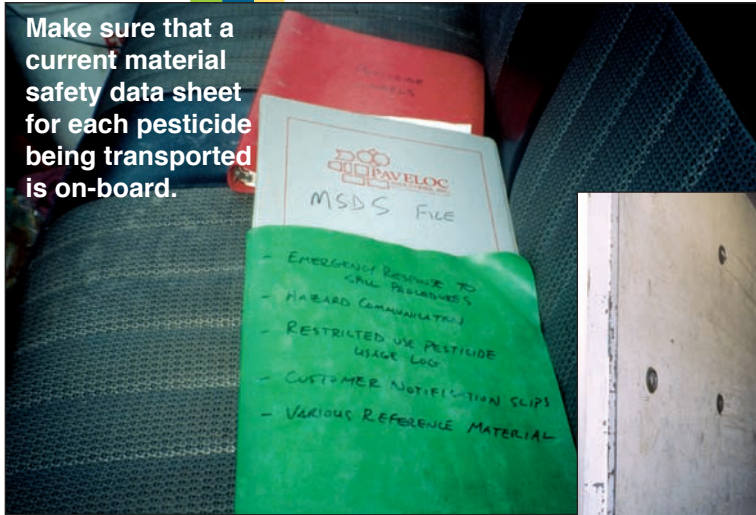 Make sure that a
current material
safety data sheet
for each pesticide
being transported
is on-board.
LABELS
PAVELOC
INDUSTRIES, INC.
MSDS FILE
- EMERGENCY RESPONSE TO
SPILL PROCEDURES
- HAZARD COMMUNICATION
- RESTRICTED USE PESTICIDE
USAGE LOG
- CUSTOMER NOTIFICATION SLIPS
- VARIOUS REFERENCE MATERIAL